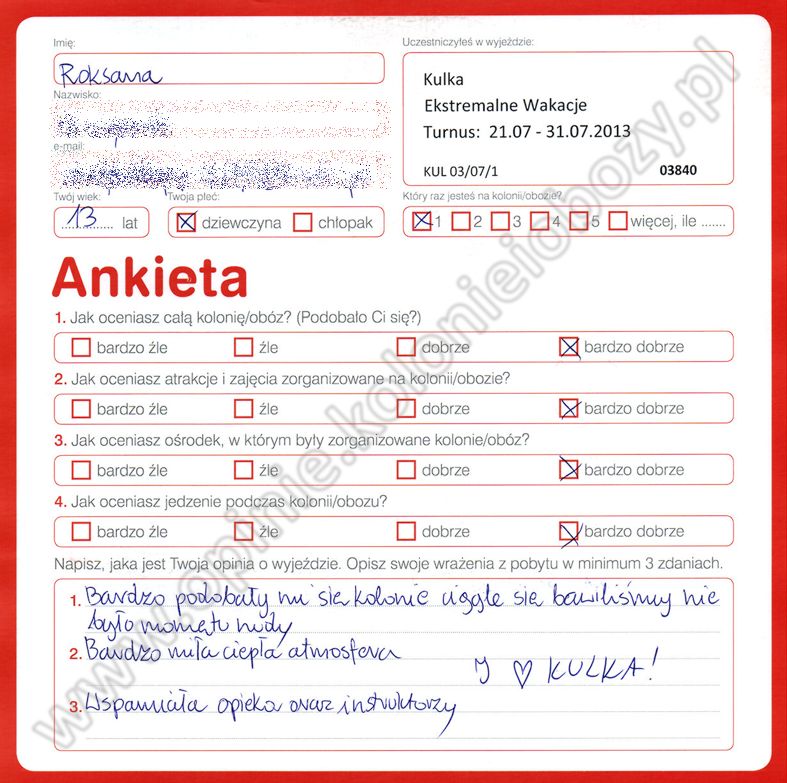 Imię:
Roksana
Nazwisko:
e-mail:
Twój wiek:
13 lat
Twoja płeć:
dziewczyna chłopak
Uczestniczyłeś w wyjeździe:
Kulka
Ekstremalne Wakacje
Turnus: 21.07 - 31.07.2013
KUL 03/07/1 03840
Który raz jesteś na kolonii/obozie?
1 2 3 4 5 więcej, ile .......
Ankieta
1. Jak oceniasz całą kolonię/obóz? (Podobało Ci się?)
bardzo źle źle dobrze bardzo dobrze
2. Jak oceniasz atrakcje i zajęcia zorganizowane na kolonii/obozie?
bardzo źle źle dobrze bardzo dobrze
3. Jak oceniasz ośrodek, w którym były zorganizowane kolonie/obóz?
bardzo źle źle dobrze bardzo dobrze
4. Jak oceniasz jedzenie podczas kolonii/obozu?
bardzo źle źle dobrze bardzo dobrze
Napisz, jaka jest Twoja opinia o wyjeździe. Opisz swoje wrażenia z pobytu w minimum 3 zdaniach.
1. Bardzo podobały mi się kolonie ciągle się bawiliśmy nie
było momętu nudy
2. Bardzo miła ciepła atmosfera
I ♡ KULKA!
3. Wspaniała opieka oraz instruktorzy
www.opinie.kolonieiobozy.pl